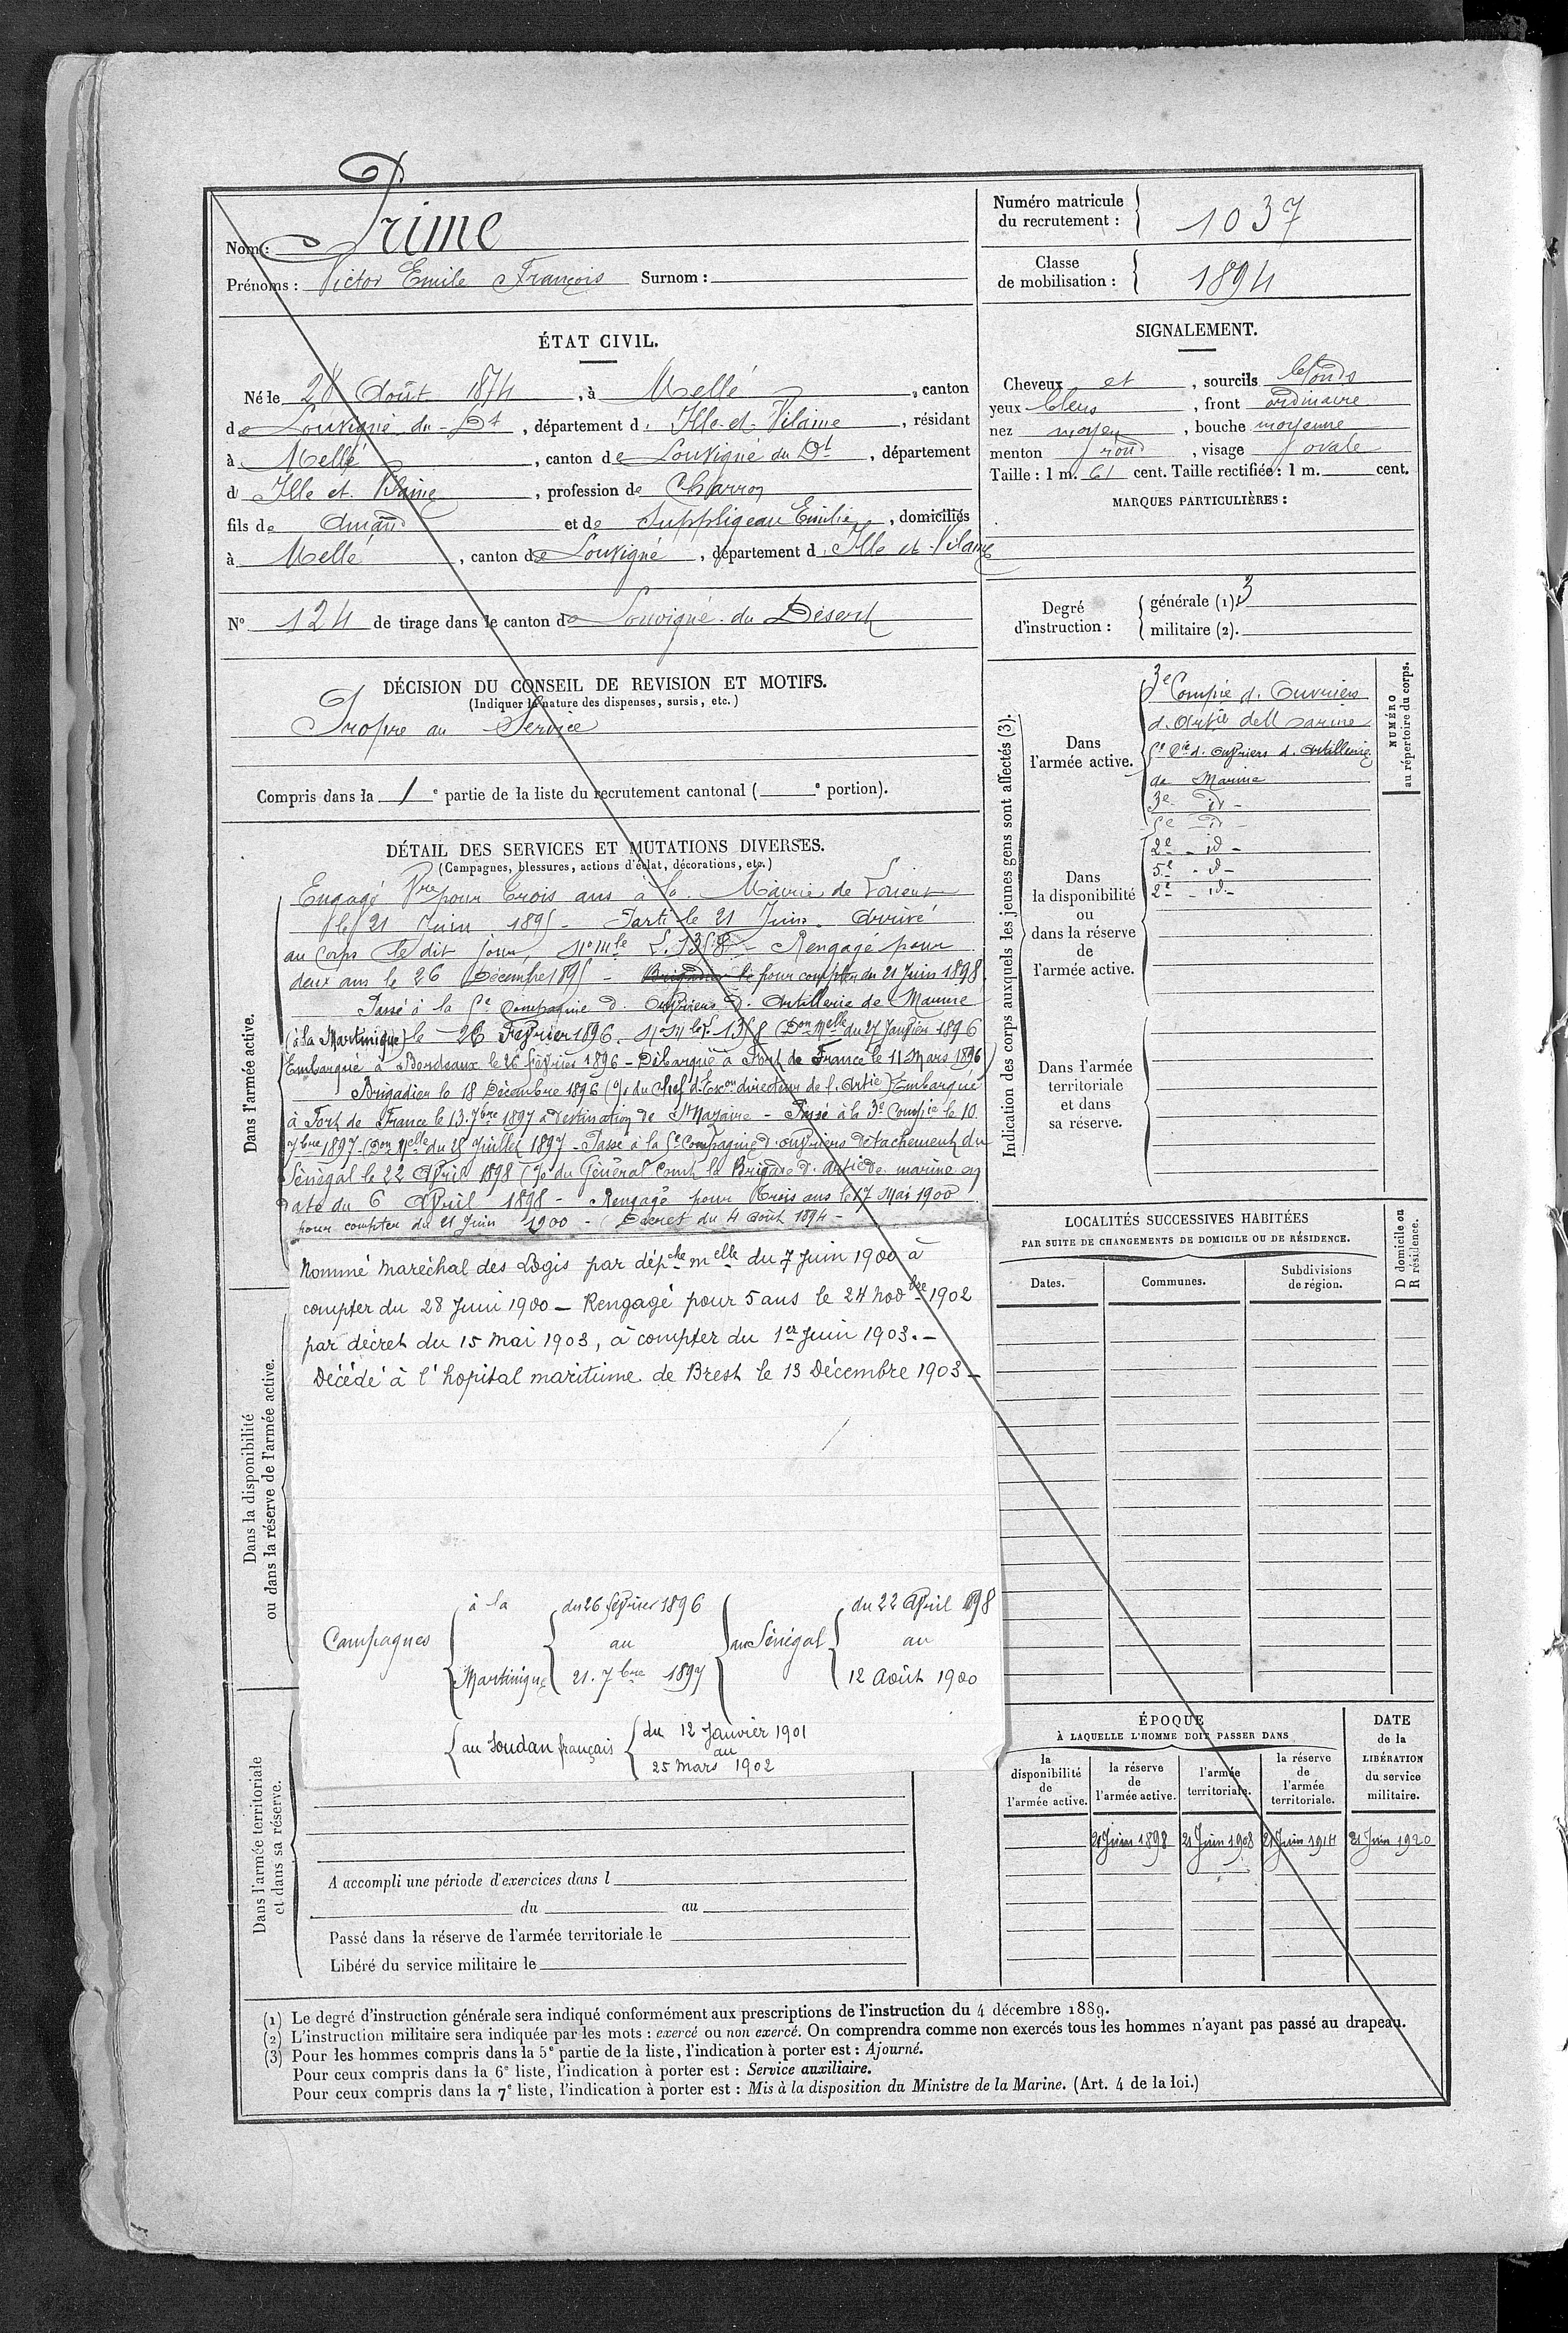 Nom : Prime
Prénoms : Victor Emile François Surnom :
Numéro matricule du recrutement : 1037
Classe de mobilisation : 1894
ÉTAT CIVIL.
Né le 28 Août 1874, à Mellé, canton
de Louvigné du Dt, département d'Ille-et-Vilaine, résidant
à Mellé, canton de Louvigné du Dt, département
d'Ille et Vilaine, profession de Charron
fils de Amand et de Suppligeau Emilie, domiciliés
à Mellé, canton de Louvigné, département d'Ille et Vilaine
N° 124 de tirage dans le canton de Louvigné du Désert
SIGNALEMENT.
Cheveux et, sourcils blonds
yeux bleus, front ordinaire
nez moyen, bouche moyenne
menton rond, visage ovale
Taille : 1 m. 61 cent. Taille rectifiée : 1 m. cent.
MARQUES PARTICULIÈRES :
Degré d'instruction : générale (1). 3
militaire (2).
DÉCISION DU CONSEIL DE REVISION ET MOTIFS.
(Indiquer la nature des dispenses, sursis, etc.)
Propre au Service
Compris dans la 1e partie de la liste du recrutement cantonal ( e portion).
DÉTAIL DES SERVICES ET MUTATIONS DIVERSES.
(Campagnes, blessures, actions d'éclat, décorations, etc.)
Dans l'armée active.
Engagé Vre pour trois ans à la Mairie de Lorient
le 21 Juin 1895 - Parti le 21 Juin. Arrivé
au Corps le dit jour, No mle 1358 - Rengagé pour
deux ans le 26 Décembre 1895 - Brigadier le pour compter du 21 Juin 1898
Passé à la 5e Compagnie d'Ouvriers d'Artillerie de Marine
(à la Martinique) le 26 Février 1896. No Mle 1358 (Don Melle du 27 Janvier 1896
Embarqué à Bordeaux le 26 février 1896 - Débarqué à Fort de France le 11 Mars 1896)
Brigadier le 18 Décembre 1896 (% du Chef d'Exon directeur de l'Artie) Embarqué
à Fort de France le 13 7bre 1897 à destination de St Nazaire - Passé à la 3e Compie le 10
7bre 1897 - (Don Melle du 28 Juillet 1897 - Passé à la 5e Compagnie d'ouvriers détachement du
Sénégal le 22 Avril 1898 (% du Général Comt la Brigade d'artie de marine en
date du 6 Avril 1898 - Rengagé pour trois ans le 17 Mai 1900
pour compter du 21 Juin 1900 - (Décret du 4 Août 1894 -
Nommé maréchal des Logis par dépche melle du 7 Juin 1900 à
compter du 28 Juin 1900 - Rengagé pour 5 ans le 24 novbre 1902
par décret du 15 mai 1903, à compter du 1er Juin 1903. -
Décédé à l'hopital maritime de Brest le 13 Décembre 1903 -
Dans la disponibilité
ou dans la réserve de l'armée active.
Campagnes
à la Martinique du 26 février 1896 au 21. 7bre 1897
au Sénégal du 22 Avril 1898 au 12 Août 1900
au Soudan français du 12 Janvier 1901 au 25 mars 1902
Dans l'armée territoriale
et dans sa réserve.
A accompli une période d'exercices dans l
du au
Passé dans la réserve de l'armée territoriale le
Libéré du service militaire le
Indication des corps auxquels les jeunes gens sont affectés (3).
NUMÉRO au répertoire du corps.
Dans l'armée active.
3e Compie d'Ouvriers
d'Artie de Marine
5e Cie d'ouvriers d'Artillerie
de Marine
3e id -
5e id -
Dans la disponibilité ou dans la réserve de l'armée active.
2e - id -
5e - d -
2e - id -
Dans l'armée territoriale et dans sa réserve.
LOCALITÉS SUCCESSIVES HABITÉES
PAR SUITE DE CHANGEMENTS DE DOMICILE OU DE RÉSIDENCE.
D domicile ou R résidence.
Dates. Communes. Subdivisions de région.
ÉPOQUE
À LAQUELLE L'HOMME DOIT PASSER DANS
DATE de la LIBÉRATION du service militaire.
la disponibilité de l'armée active.
la réserve de l'armée active.
l'armée territoriale.
la réserve de l'armée territoriale.
21 Juin 1898 21 Juin 1908 21 Juin 1914 21 Juin 1920
(1) Le degré d'instruction générale sera indiqué conformément aux prescriptions de l'instruction du 4 décembre 1889.
(2) L'instruction militaire sera indiquée par les mots : exercé ou non exercé. On comprendra comme non exercés tous les hommes n'ayant pas passé au drapeau.
(3) Pour les hommes compris dans la 5e partie de la liste, l'indication à porter est : Ajourné.
Pour ceux compris dans la 6e liste, l'indication à porter est : Service auxiliaire.
Pour ceux compris dans la 7e liste, l'indication à porter est : Mis à la disposition du Ministre de la Marine. (Art. 4 de la loi.)